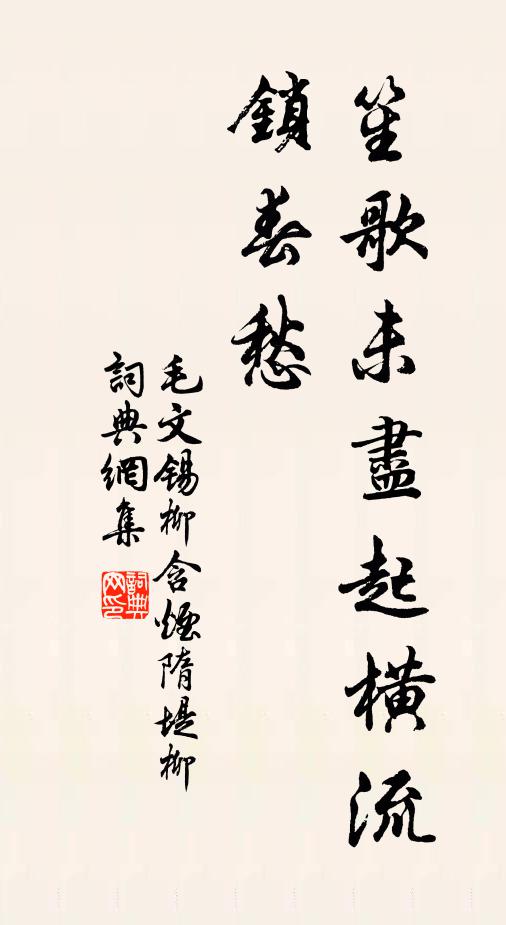 笙歌未盡起橫流
鎖春愁
毛文錫柳含煙隋堤柳
詞典網集
詞典
网印